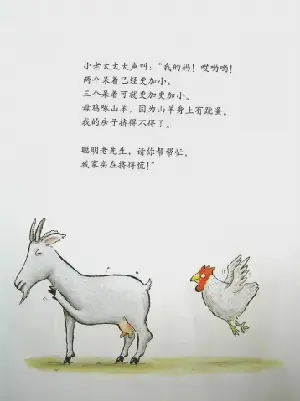 小老太太大声叫：“我的妈！哎哟哟！
两个呆着已经更加小，
三个呆着可就更加更加小。
母鸡啄山羊。因为山羊身上有跳蚤，
我的房子挤得不得了。
聪明老先生，请你帮帮忙，
我家实在挤得慌！”